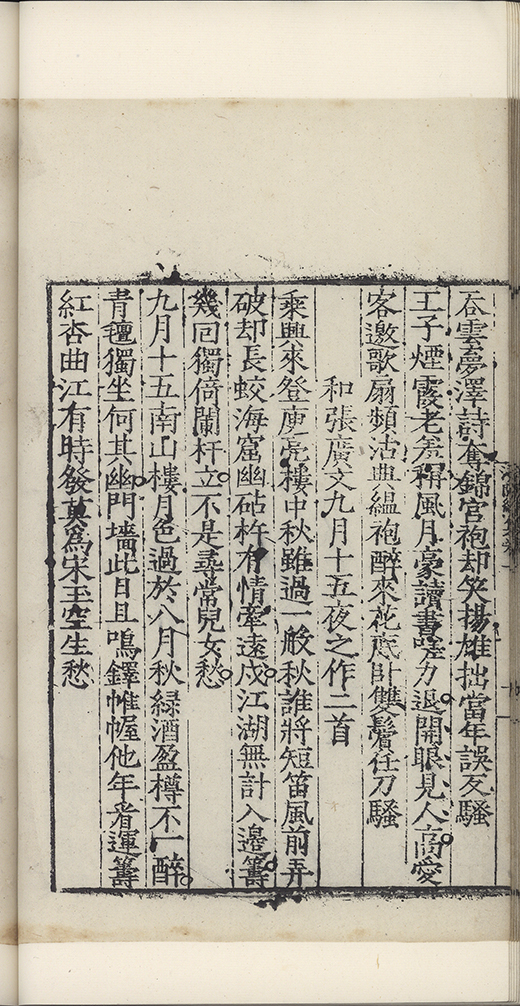 吞雲夢澤詩奪錦官袍却笑揚雄拙當年誤反騷
王子煙霞老羌稱風月豪讀書嗟力退開眼見人高愛
客邀歌扇頻沽典縕袍醉來花底卧雙鬢任刁騷
和張廣文九月十五夜之作二首
乘興來登庾亮樓中秋雖過一般秋誰將短笛風前弄
破却長蛟海窟幽砧杵有情牽遠戍江湖無計入邊籌
幾回獨倚闌杆立不是尋常兒女愁
九月十五南山樓月色過於八月秋綠酒盈樽不一醉
青氊獨坐何其幽門墻此日且鳴鐸帷幄他年看運籌
紅杏曲江有時發莫為宋玉空生愁